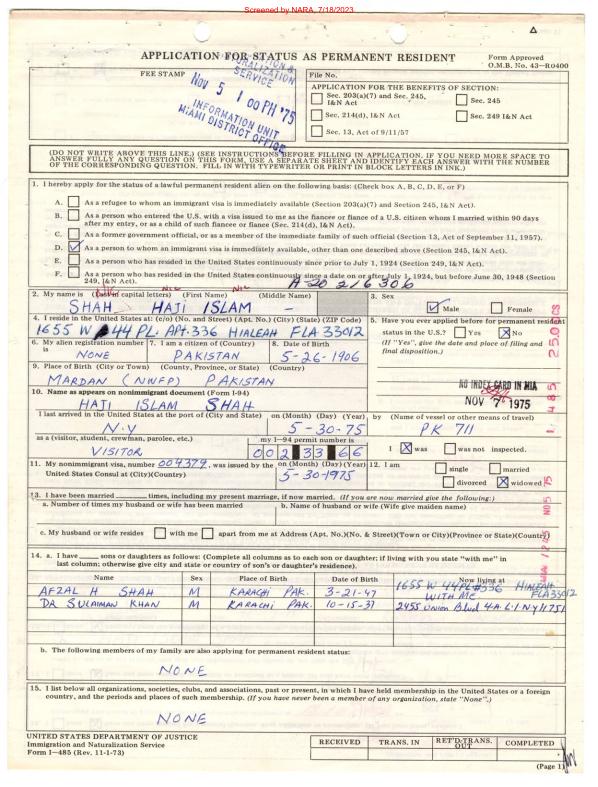 Screened by NARA, 7/18/2023
APPLICATION FOR STATUS AS PERMANENT RESIDENT
Form Approved
O.M.B. No. 43—R0400
FEE STAMP
NATURALIZATION
SERVICE
NOV 5 1 00 PM '75
INFORMATION UNIT
MIAMI DISTRICT OFFICE
File No.
APPLICATION FOR THE BENEFITS OF SECTION:
Sec. 203(a)(7) and Sec. 245, I&N Act
Sec. 245
Sec. 214(d), I&N Act
Sec. 249 I&N Act
Sec. 13, Act of 9/11/57
(DO NOT WRITE ABOVE THIS LINE.) (SEE INSTRUCTIONS BEFORE FILLING IN APPLICATION. IF YOU NEED MORE SPACE TO
ANSWER FULLY ANY QUESTION ON THIS FORM, USE A SEPARATE SHEET AND IDENTIFY EACH ANSWER WITH THE NUMBER
OF THE CORRESPONDING QUESTION. FILL IN WITH TYPEWRITER OR PRINT IN BLOCK LETTERS IN INK.)
1. I hereby apply for the status of a lawful permanent resident alien on the following basis: (Check box A, B, C, D, E, or F)
A. As a refugee to whom an immigrant visa is immediately available (Section 203(a)(7) and Section 245, I&N Act).
B. As a person who entered the U.S. with a visa issued to me as the fiancee or fiance of a U.S. citizen whom I married within 90 days
after my entry, or as a child of such fiancee or fiance (Sec. 214(d), I&N Act).
C. As a former government official, or as a member of the immediate family of such official (Section 13, Act of September 11, 1957).
D. As a person to whom an immigrant visa is immediately available, other than one described above (Section 245, I&N Act).
E. As a person who has resided in the United States continuously since prior to July 1, 1924 (Section 249, I&N Act).
F. As a person who has resided in the United States continuously since a date on or after July 1, 1924, but before June 30, 1948 (Section
249, I&N Act).
A-20 216 306
2. My name is (Last in capital letters) (First Name) (Middle Name)
SHAH HAJI ISLAM —
3. Sex
Male Female
4. I reside in the United States at: (c/o) (No. and Street) (Apt. No.) (City) (State) (ZIP Code)
1655 W 44 PL. APT.336 HIALEAH FLA 33012
5. Have you ever applied before for permanent resident
status in the U.S.? Yes No
(If "Yes", give the date and place of filing and
final disposition.)
6. My alien registration number is
NONE
7. I am a citizen of (Country)
PAKISTAN
8. Date of Birth
5-26-1906
9. Place of Birth (City or Town) (County, Province, or State) (Country)
MARDAN (NWFP) PAKISTAN
NO INDEX CARD IN MIA
NOV 7 1975
10. Name as appears on nonimmigrant document (Form I-94)
HAJI ISLAM SHAH
I last arrived in the United States at the port of (City and State)
N.Y
on (Month) (Day) (Year)
5-30-75
by (Name of vessel or other means of travel)
PK 711
as a (visitor, student, crewman, parolee, etc.)
VISITOR
my I—94 permit number is
002 33 66
I was was not inspected.
11. My nonimmigrant visa, number 004379, was issued by the
United States Consul at (City)(Country)
on (Month) (Day)(Year)
5-30-1975
12. I am
single married
divorced widowed
13. I have been married times, including my present marriage, if now married. (If you are now married give the following:)
a. Number of times my husband or wife has been married
b. Name of husband or wife (Wife give maiden name)
c. My husband or wife resides with me apart from me at Address (Apt. No.)(No. & Street)(Town or City)(Province or State)(Country)
14. a. I have sons or daughters as follows: (Complete all columns as to each son or daughter; if living with you state "with me" in
last column; otherwise give city and state or country of son's or daughter's residence).
Name Sex Place of Birth Date of Birth Now living at
AFZAL H SHAH M KARACHI PAK. 3-21-47 1655 W 44PL #336 HIALEAH FLA 33012 WITH ME.
DR SULAIMAN KHAN M KARACHI PAK. 10-15-37 2455 Union Blvd 4-A L.I N.Y 11751
b. The following members of my family are also applying for permanent resident status:
NONE
15. I list below all organizations, societies, clubs, and associations, past or present, in which I have held membership in the United States or a foreign
country, and the periods and places of such membership. (If you have never been a member of any organization, state "None".)
NONE
UNITED STATES DEPARTMENT OF JUSTICE
Immigration and Naturalization Service
Form I—485 (Rev. 11-1-73)
RECEIVED TRANS. IN RET'D-TRANS. OUT COMPLETED
(Page 1)